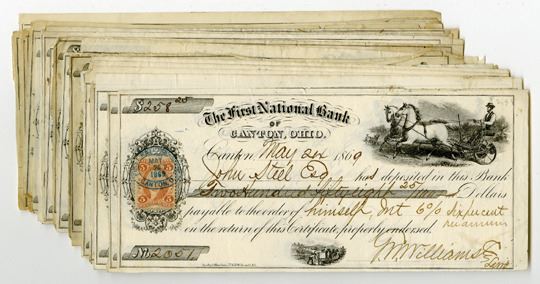 $258 25
The First National Bank
OF
CANTON, OHIO.
Canton, May 24 1869
John Steel Esq has deposited in this Bank
Two hund & fifty eight 25/100 Dollars
payable to the order of himself, Int 6% six per cent
per annum
on the return of this Certificate properly endorsed.
MAY
1869
CANTON
5 5
No 2051